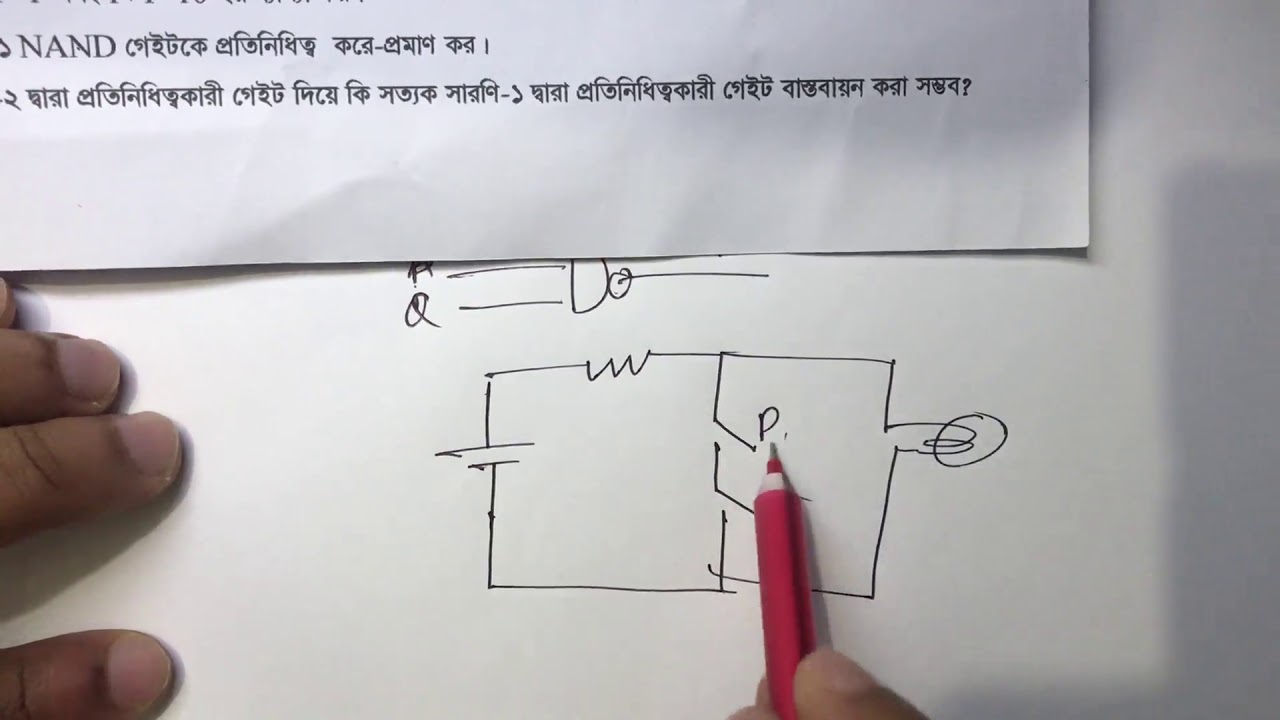 NAND গেইটকে প্রতিনিধিত্ব করে-প্রমাণ কর।
-২ দ্বারা প্রতিনিধিত্বকারী গেইট দিয়ে কি সত্যক সারণি-১ দ্বারা প্রতিনিধিত্বকারী গেইট বাস্তবায়ন করা সম্ভব?
Q
P